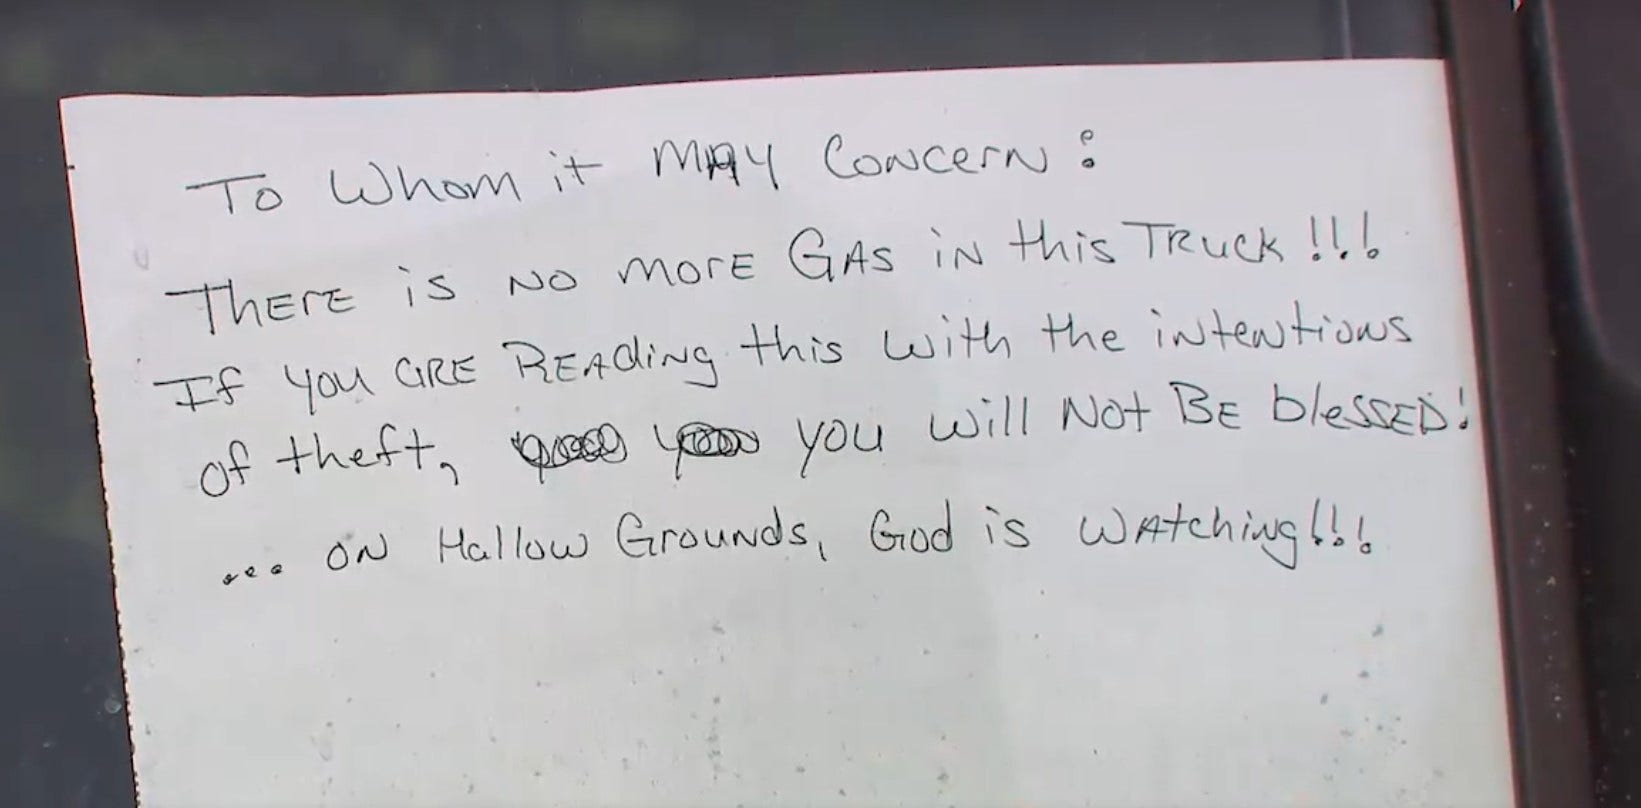 To Whom it MAY Concern:
THERE is NO MORE GAS iN this TRuck!!!
If you ARE READiNg this with the intentions
of theft, you will NOt BE blessED!
... ON Hallow Grounds, God is WAtching!!!